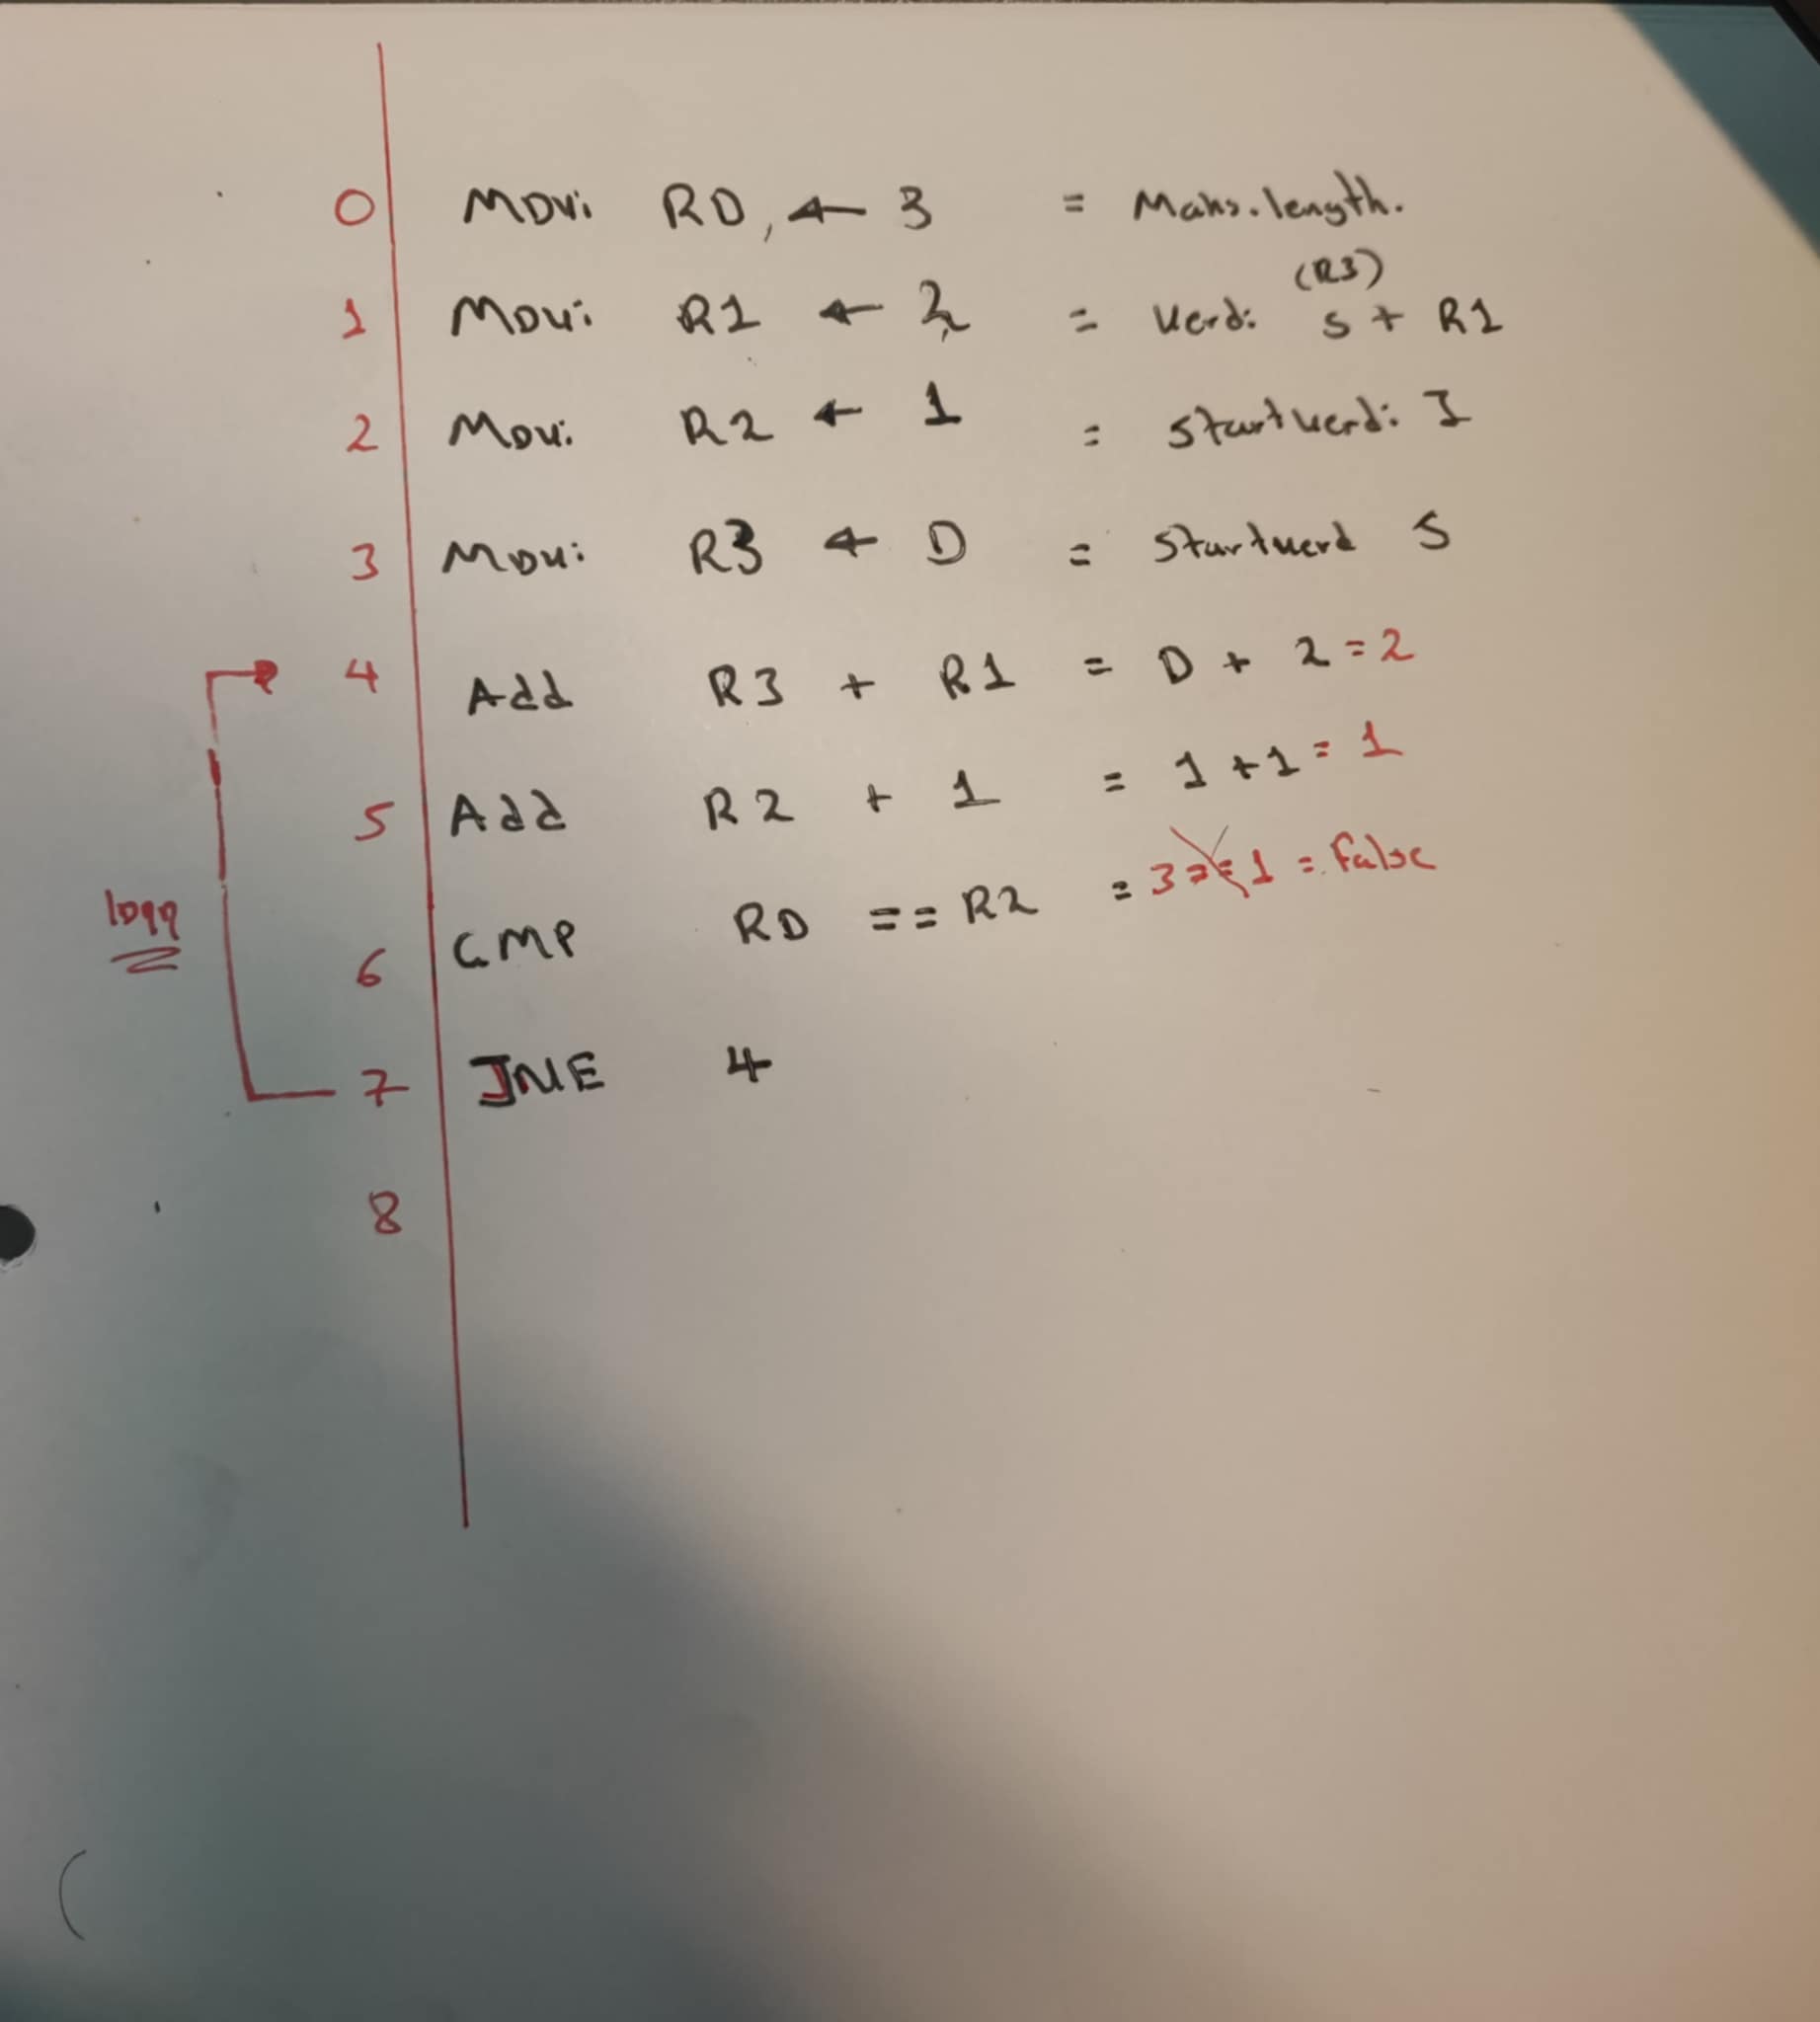 0 Movi R0, ← 3 = Maks.length.
(R3)
1 Movi R1 ← 2 = Verdi S + R1
2 Movi R2 ← 1 = startverdi I
3 Movi R3 ← 0 = Startverd S
4 Add R3 + R1 = 0 + 2 = 2
5 Add R2 + 1 = 1 + 1 = 1
6 CMP R0 == R2 = 3 == 1 = False
7 JNE 4
8